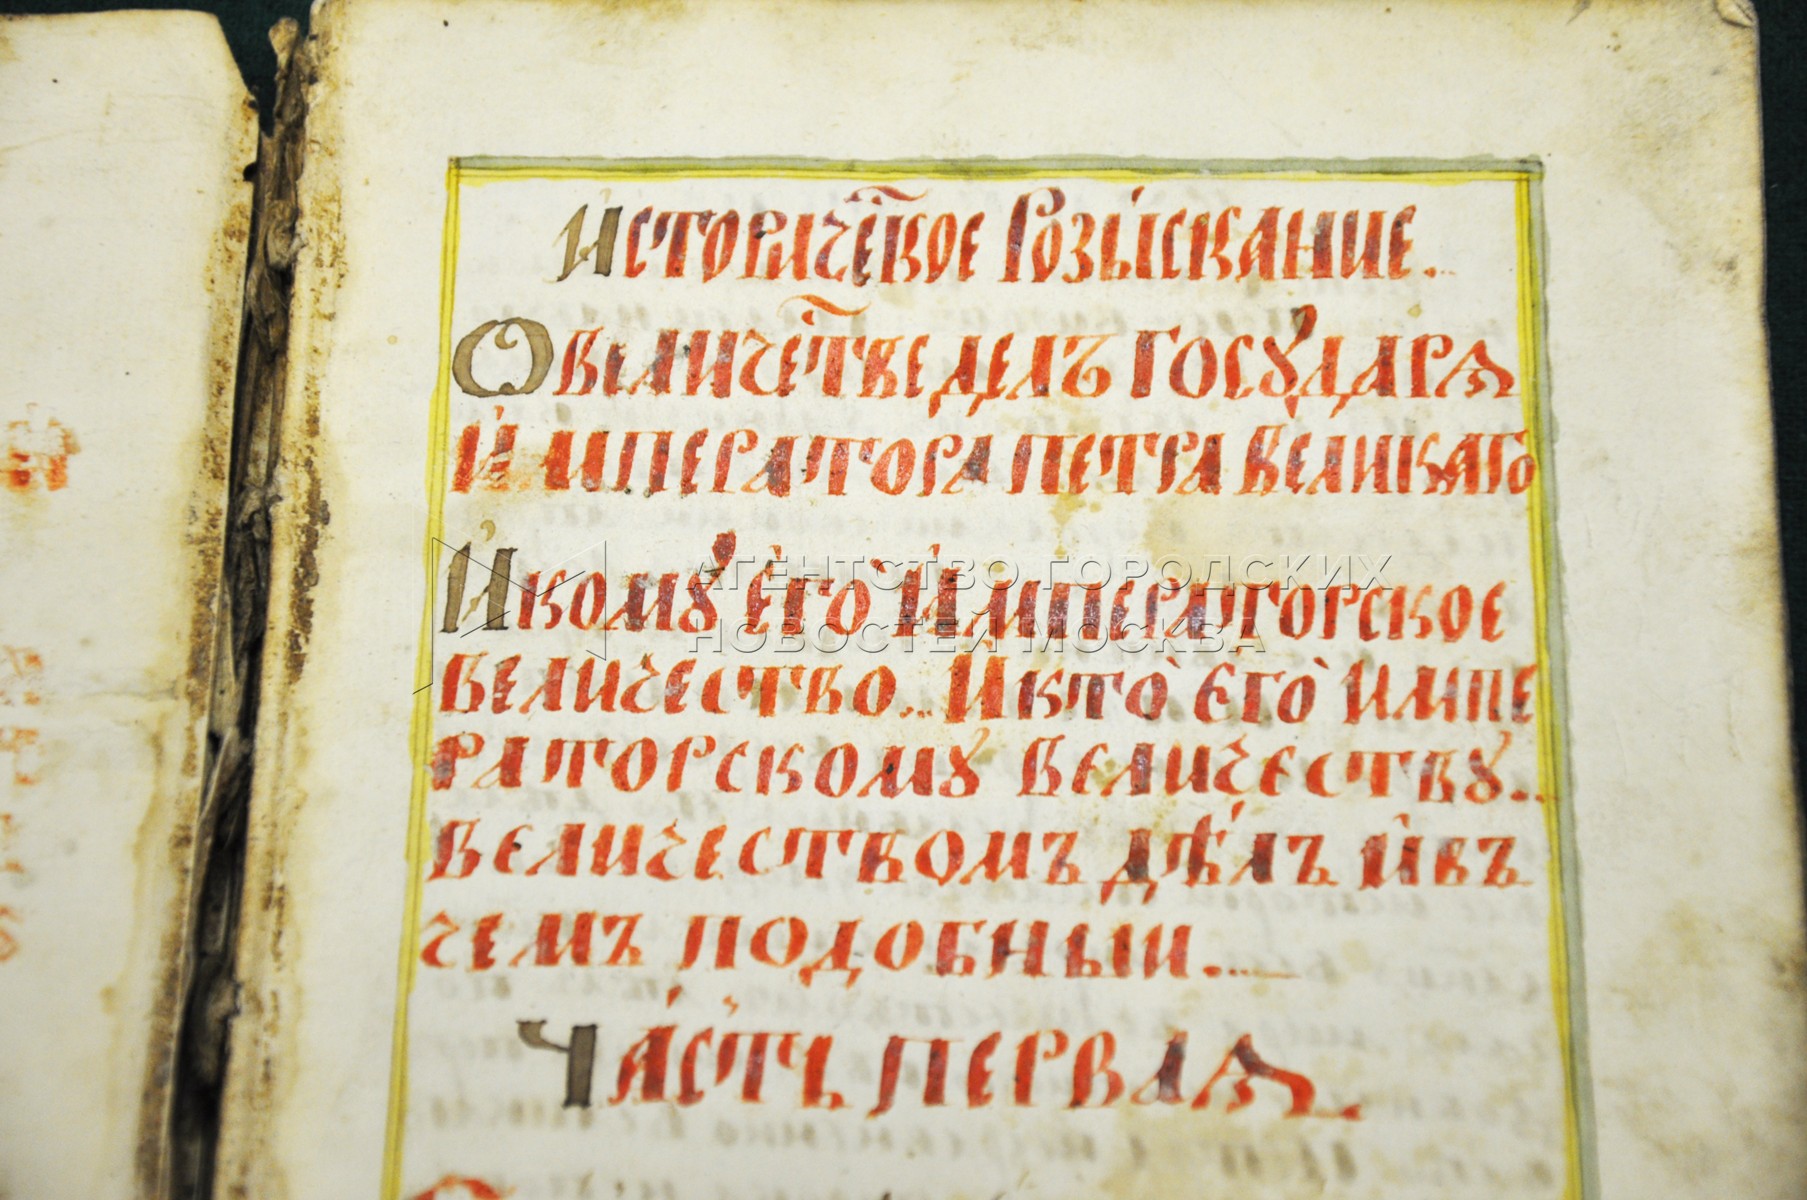 Историче́с̾кое Розы́скание...
О величест̾ве делъ государѧ
И́мператора петра великаго
И́ комꙋ его̀ И́мператорское
величество... И кто̀ его̀ импе
раторскомꙋ величествꙋ...
величествомъ дѣ́лъ и въ
чемъ подобный....
Ча́сть перваѧ
АГЕНТСТВО ГОРОДСКИХ
НОВОСТЕЙ МОСКВА